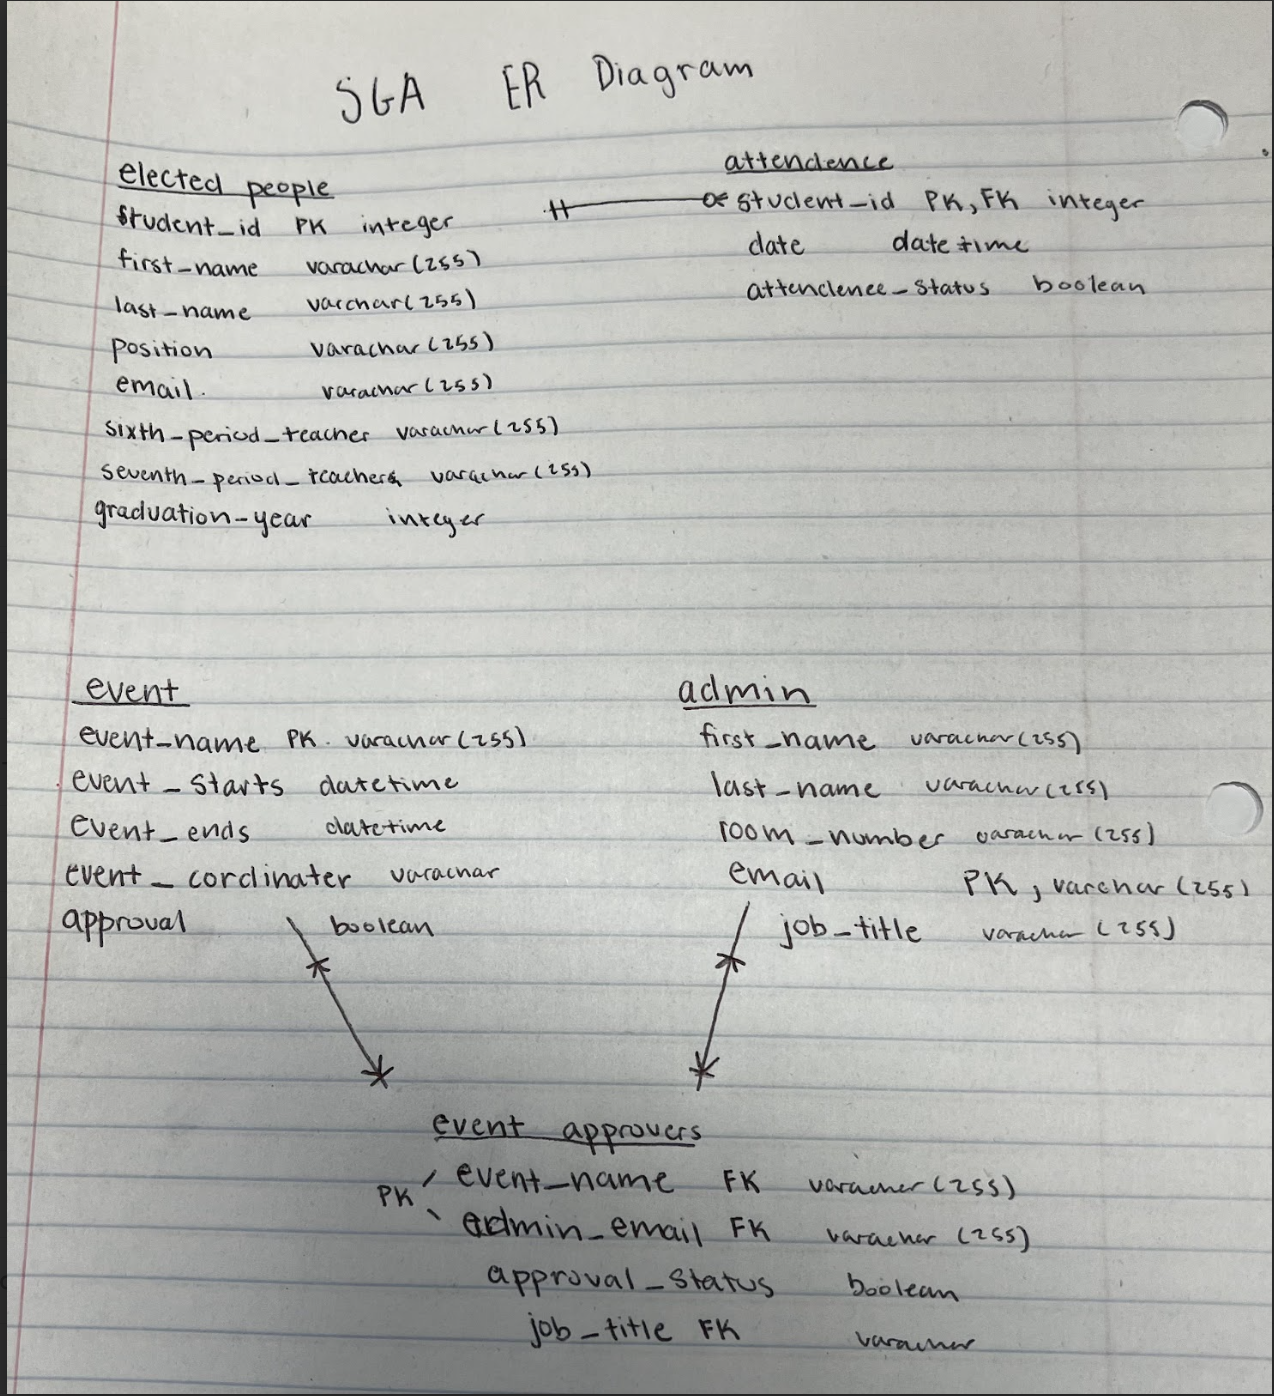 SGA ER Diagram
elected people
student_id PK integer
first_name varachar(255)
last_name varchar(255)
position varachar(255)
email. varachar(255)
sixth_period_teacher varachar(255)
seventh_period_teachers varachar(255)
graduation_year integer
attendence
student_id PK, FK integer
date datetime
attendence_status boolean
event
event_name PK. varachar(255)
event_starts datetime
event_ends datetime
event_cordinater varachar
approval boolean
admin
first_name varachar(255)
last_name varachar(255)
room_number varachar (255)
email PK, varchar(255)
job_title varachar (255)
event approvers
PK
event_name FK varachar(255)
admin_email FK varachar (255)
approval_status boolean
job_title FK varachar